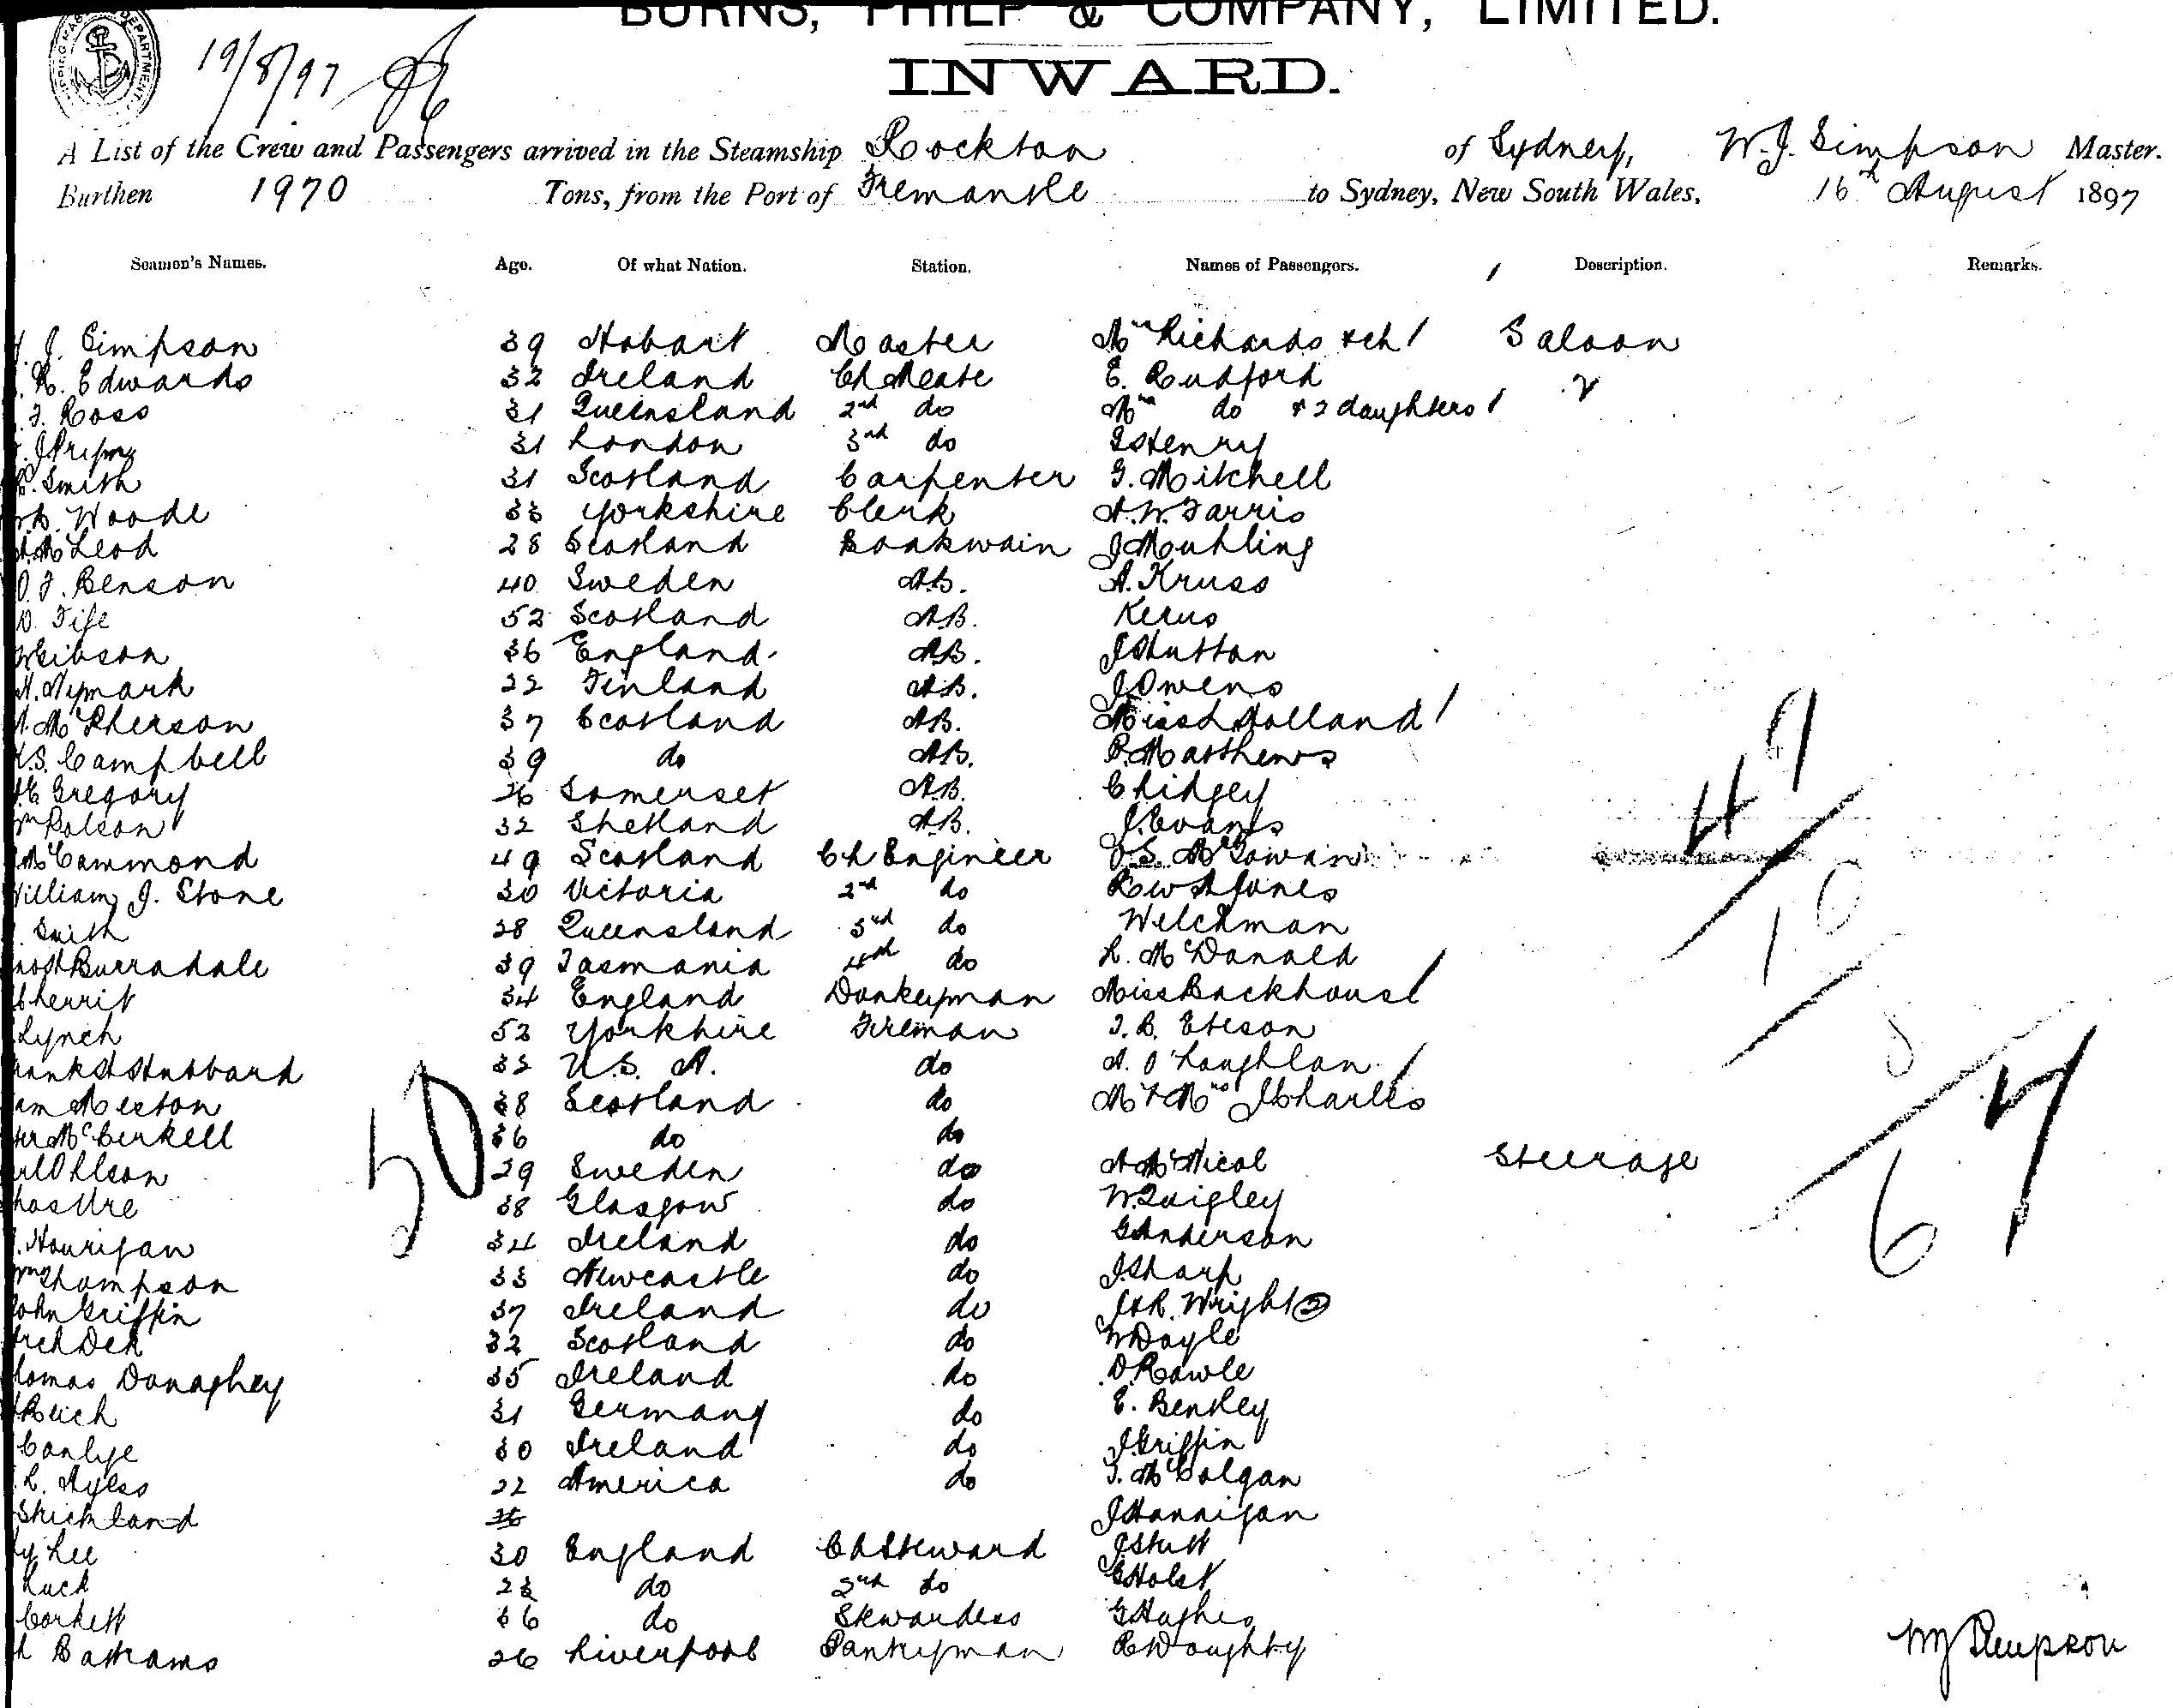 BURNS, PHILP & COMPANY, LIMITED.
19/8/97
INWARD.
A List of the Crew and Passengers arrived in the Steamship Rockton of Sydney, W. J. Simpson Master.
Burthen 1970 Tons, from the Port of Fremantle to Sydney, New South Wales, 16th August 1897
Seamen's Names. Age. Of what Nation. Station. Names of Passengers. Description. Remarks.
J. Simpson 39 Hobart Master Mrs Richards & ch / Saloon
R. Edwards 32 Ireland Ch Mate E. Rudford
J. Ross 31 Queensland 2nd do Mrs do & 2 daughters /
31 London 3rd do Henry
Smith 31 Scotland Carpenter G. Mitchell
Woode 33 Yorkshire Clerk A. W. Farris
McLeod 28 Scotland Boatswain J Muhling
O. J. Benson 40 Sweden A.B. A. Kruss
D. Fife 52 Scotland A.B. Kerus
Gibson 36 England A.B. J Hutton
Nymark 22 Finland A.B. J Owens
McPherson 37 Scotland A.B. Miss L Holland /
S. Campbell 39 do A.B. P. Matthews
Gregory 26 Somerset A.B. Chidgey
Wm Polson 32 Shetland A.B. J. Evans
McCammond 49 Scotland Ch Engineer McGowan
William J. Stone 30 Victoria 2nd do Rev A Jones
Smith 28 Queensland 3rd do Welchman
Burradale 39 Tasmania 4th do L. McDonald
Sherrit 34 England Donkeyman Miss Backhouse /
Lynch 52 Yorkshire Fireman J. B. Eteson
Frank Hubbard 33 U.S.A. do A. O'Loughlan /
Mexton 38 Scotland do Mr & Mrs J Charles
McCerkell 36 do do
Ohlson 29 Sweden do A McNicol Steerage
Chas Ure 38 Glasgow do W. Quigley
Hourigan 34 Ireland do G Anderson
Wm Thompson 33 Newcastle do J. Sharp
John Griffin 37 Ireland do J & R. Wright 2
32 Scotland do W Doyle
Thomas Donaghey 35 Ireland do D Rawle
Reich 31 Germany do E. Bentley
30 Ireland do J Griffin
Ayless 22 America do J. McColgan
Strickland 26 J Hannigan
Lee 30 England Ch Steward J Stutt
Luck 23 do 2nd do C Holst
Corkett 36 do Stewardess G Hughes
Battrams 26 Liverpool Pantryman R Doughty
50
49
10
8
67
W J Simpson